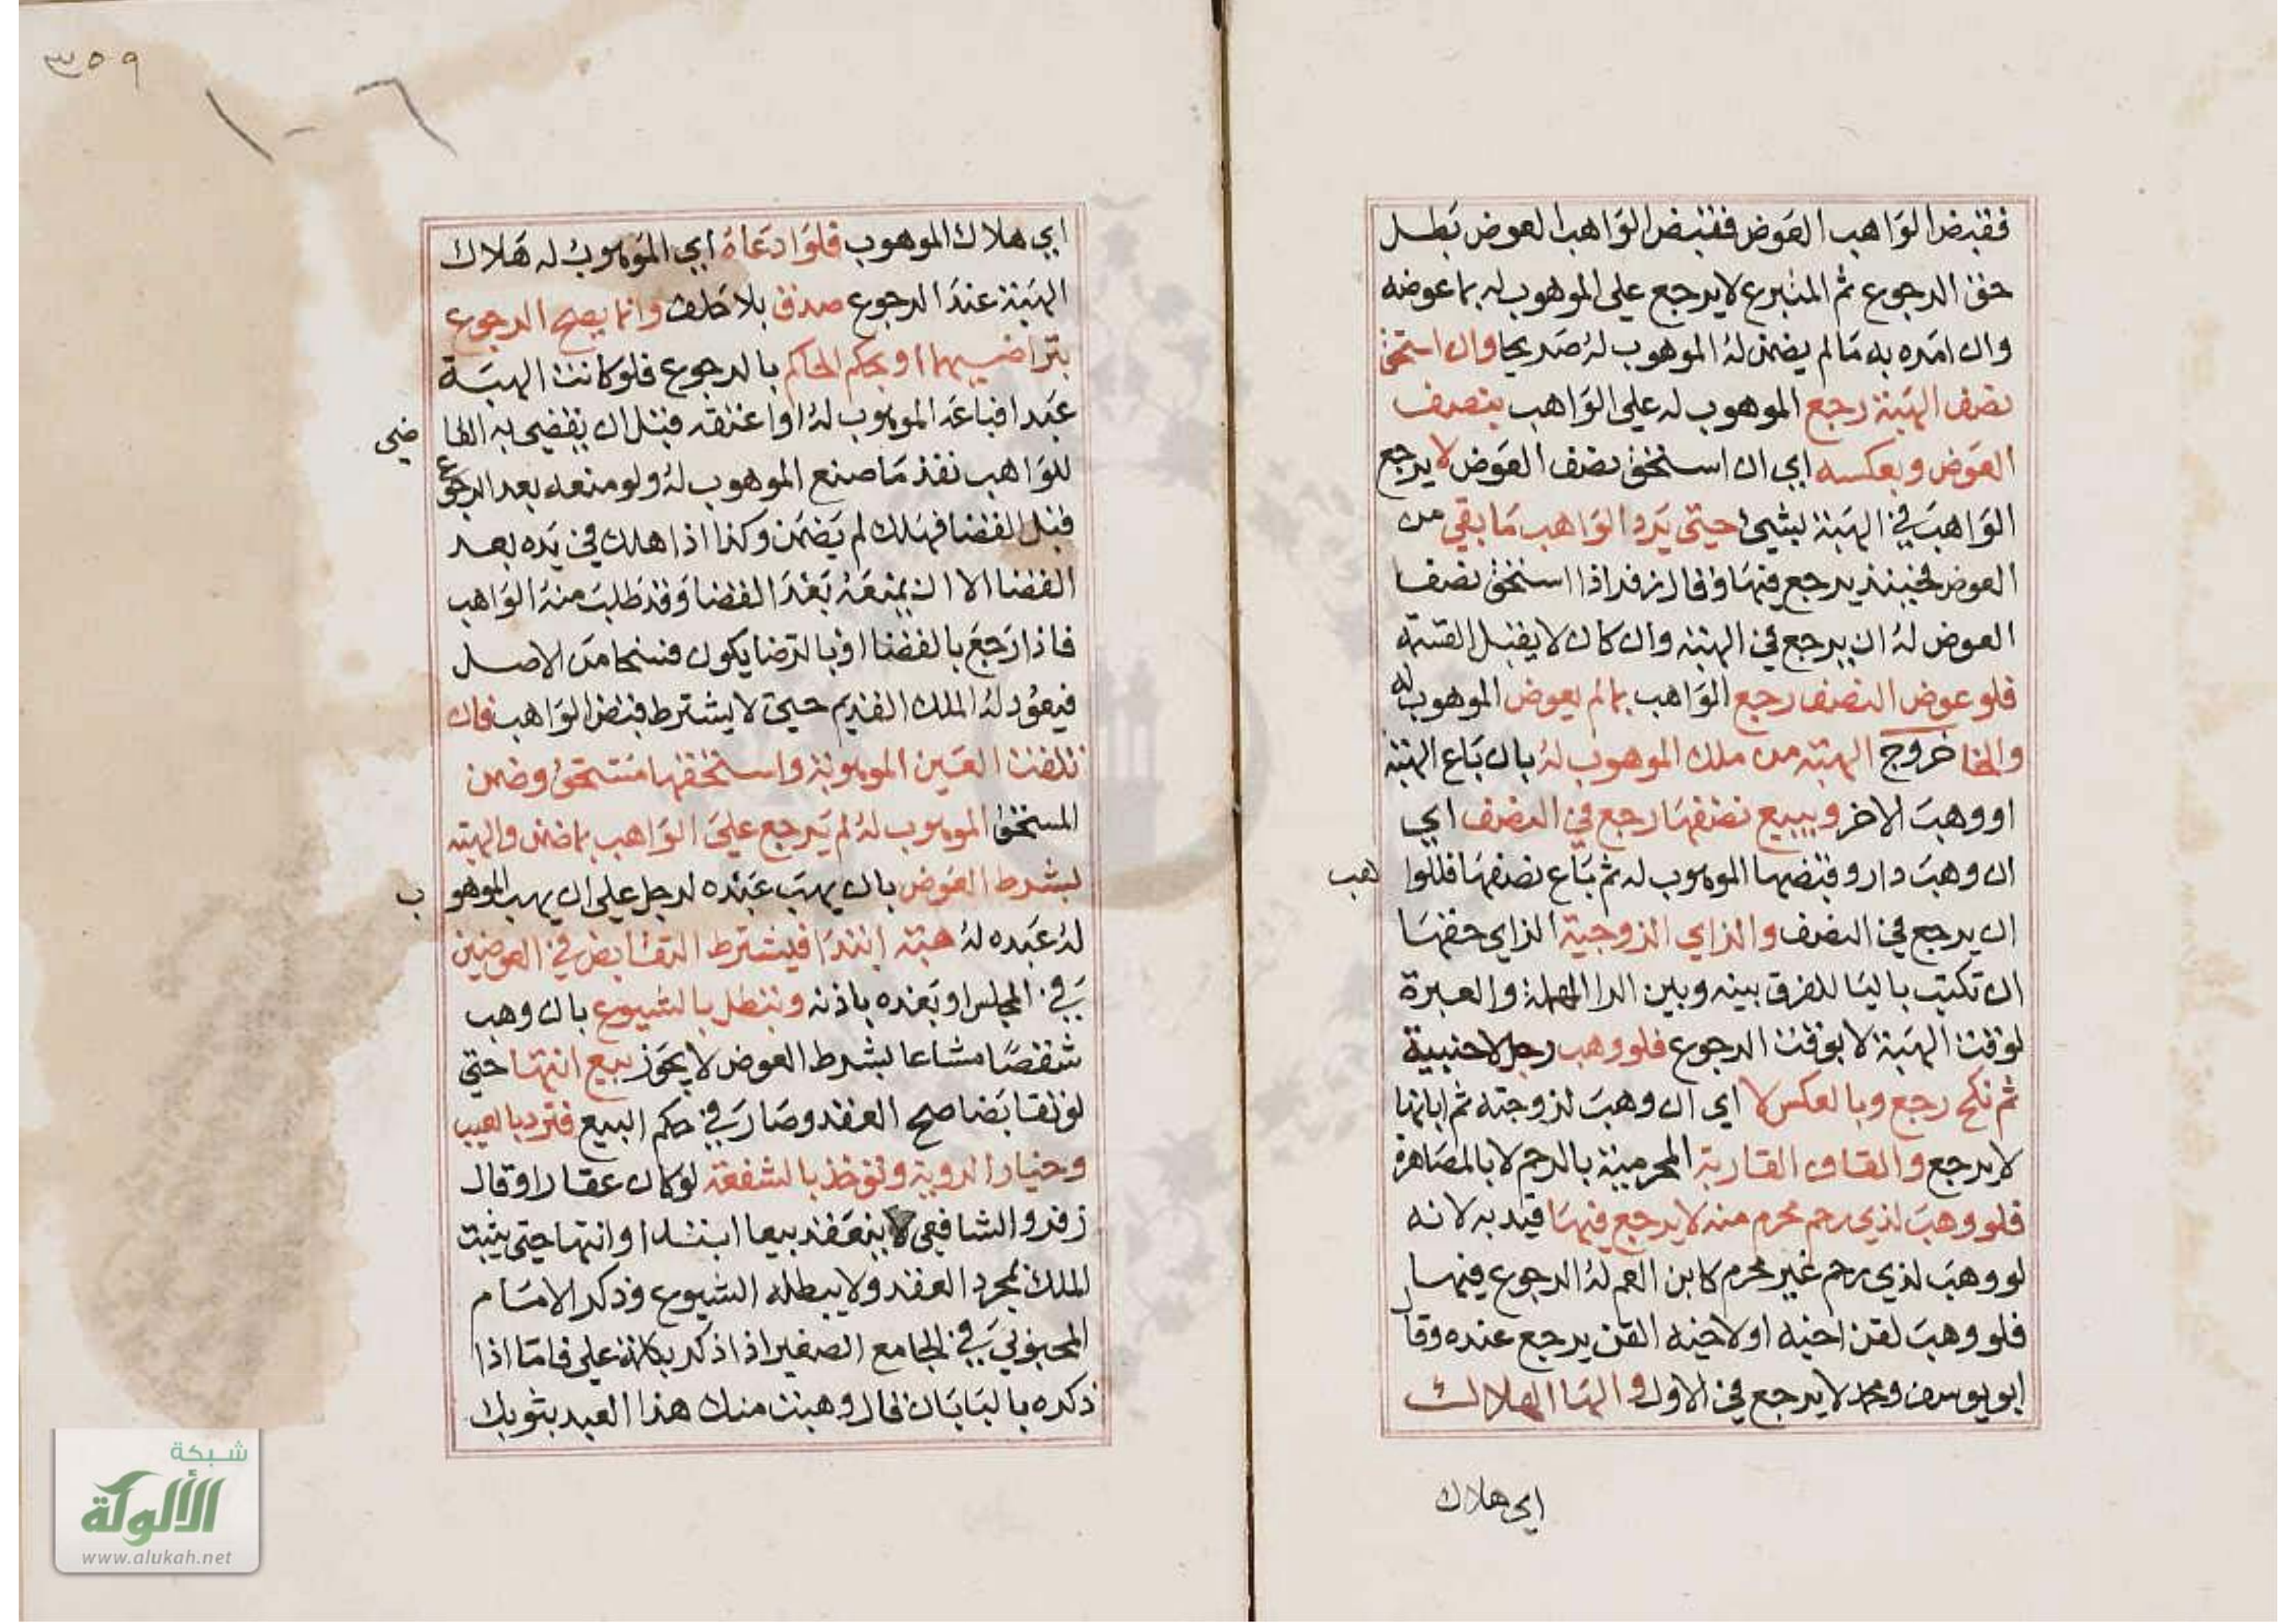 فقبض الواهب العوض فقبض الواهب العوض بطل
حق الرجوع ثم المتبرع لا يرجع على الموهوب له بما عوضه
وان امره به مالم يضمن له الموهوب له صريحا وان استحق
نصف الهبة رجع الموهوب له على الواهب بنصف
العوض وبعكسه اي ان استحق نصف العوض لا يرجع
الواهب في الهبة بشيء حتى يرد الواهب ما بقي من
العوض فحينئذ يرجع فيها وقال زفر اذا استحق نصف
العوض له ان يرجع في الهبة وان كان لا يقبل القسمة
فلو عوض النصف رجع الواهب بما لم يعوض الموهوب له
والخا خروج الهبة من ملك الموهوب له بان باع الهبة
او وهب لاخر وببيع نصفها رجع في النصف اي
ان وهب دار وقبضها الموهوب له ثم باع نصفها فللواهب
ان يرجع في النصف والزاي الزوجية الزاي حقها
ان تكتب باليا للفرق بينه وبين الرا المهملة والعبرة
لوقت الهبة لا بوقت الرجوع فلو وهب رجل لاجنبية
ثم نكح رجع وبالعكس لا اي ان وهب لزوجته ثم ابانها
لا يرجع والقاف القرابة المحرمية بالرحم لا بالمصاهرة
فلو وهب لذي رحم محرم منه لا يرجع فيها قيد به لانه
لو وهب لذي رحم غير محرم كابن العم له الرجوع فيها
فلو وهب لقن اخيه او لاخيه القن يرجع عنده وقال
ابو يوسف ومحمد لا يرجع في الاول والها الهلاك
اي هلاك
٣٥٩
١-٦
اي هلاك الموهوب فلو ادعاه اي الموهوب له هلاك
الهبة عند الرجوع صدق بلا حلف وانما يصح الرجوع
بتراضيهما او بحكم الحاكم بالرجوع فلو كانت الهبة
عبدا فباعه الموهوب له او اعتقه قبل ان يقضي به القاضي
للواهب نفذ ما صنع الموهوب له ولو منعه بعد الرجوع
قبل القضا فهلك لم يضمن وكذا اذا هلك في يده بعد
القضا الا ان يمنعه بعد القضا وقد طلب منه الواهب
فاذا رجع بالقضا او بالرضا يكون فسخا من الاصل
فيعود له الملك القديم حتى لا يشترط قبض الواهب فان
تلفت العين الموهوبة واستحقها مستحق وضمن
المستحق الموهوب له لم يرجع على الواهب بما ضمن والهبة
بشرط العوض بان يهب عبده لرجل على ان يهب الموهوب
له عبده له هبة ابتدا فيشترط التقابض في العوضين
في المجلس او بعده باذنه وتبطل بالشيوع بان وهب
شقصا مشاعا بشرط العوض لا يجوز بيع انتها حتى
لو تقابضا صح العقد وصار في حكم البيع فترد بالعيب
وخيار الروية وتوخذ بالشفعة لو كان عقارا وقال
زفر والشافعي لا ينعقد بيعا ابتدا وانتها حتى يثبت
الملك بمجرد العقد ولا يبطله الشيوع وذكر الامام
المحبوبي في الجامع الصغير اذا ذكر بكلمة على فاما اذا
ذكره بالبا بان قال وهبت منك هذا العبد بثوبك
شبكة
الألوكة
www.alukah.net